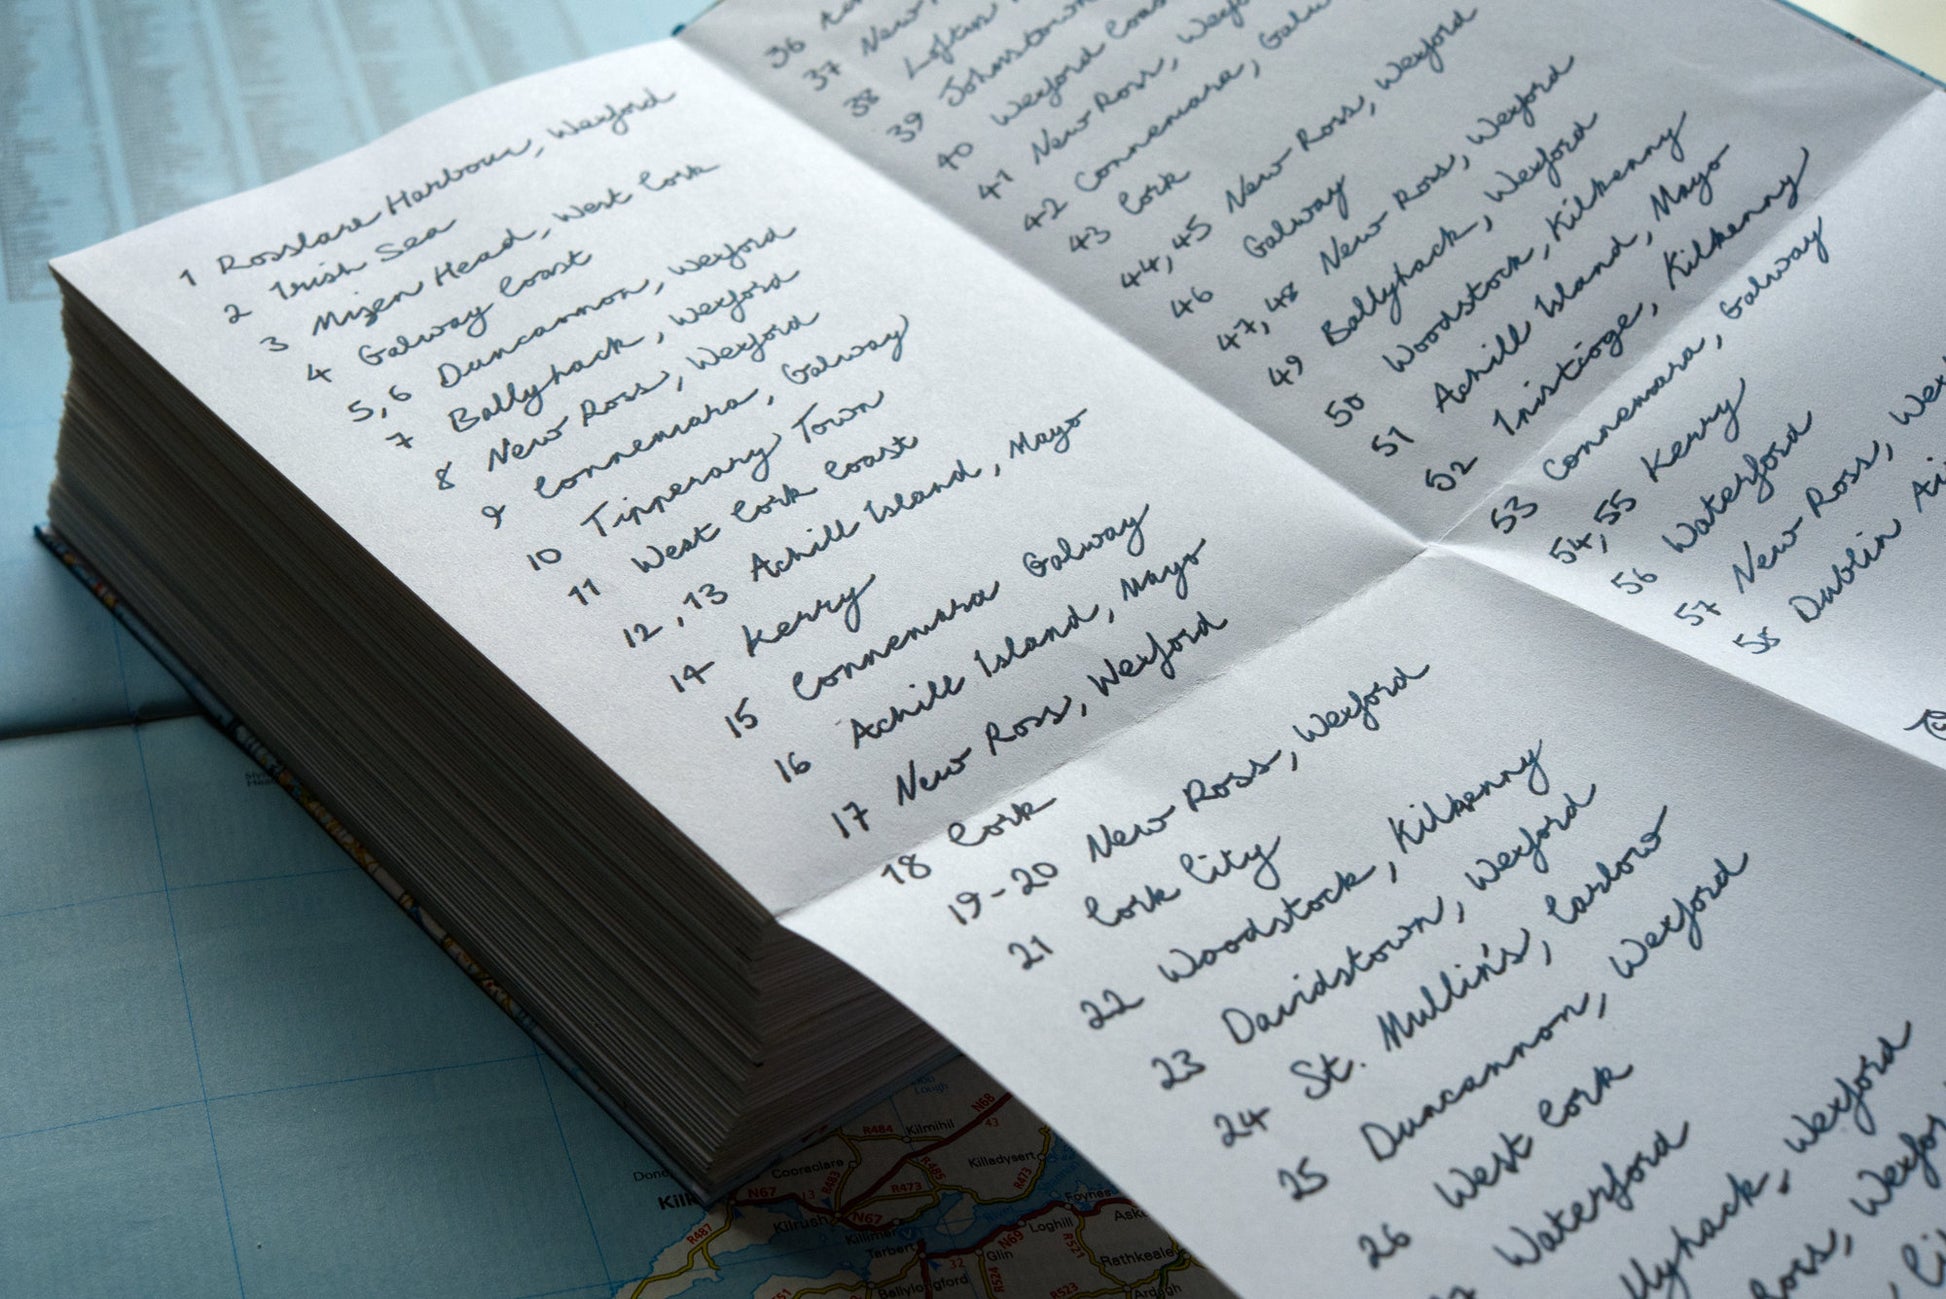 1 Rosslare Harbour, Wexford
2 Irish Sea
3 Mizen Head, West Cork
4 Galway Coast
5,6 Duncannon, Wexford
7 Ballyhack, Wexford
8 New Ross, Wexford
9 Connemara, Galway
10 Tipperary Town
11 West Cork Coast
12,13 Achill Island, Mayo
14 Kerry
15 Connemara Galway
16 Achill Island, Mayo
17 New Ross, Wexford
18 Cork
19-20 New Ross, Wexford
21 Cork City
22 Woodstock, Kilkenny
23 Davidstown, Wexford
24 St. Mullin's, Carlow
25 Duncannon, Wexford
26 West Cork
Waterford
36
37 New
38
39 Johnstown
40 Wexford Coast
41 New Ross,
42 Connemara,
43 Cork
44,45 New Ross, Wexford
46 Galway
47,48 New Ross, Wexford
49 Ballyhack, Wexford
50 Woodstock, Kilkenny
51 Achill Island, Mayo
52 Inistioge, Kilkenny
53 Connemara, Galway
54,55 Kerry
56 Waterford
57 New Ross,
58 Dublin
N68
43
R484
Kilmihil
Cooraclare
R485
Killadysert
R483
R473
R473
N67
13
Kilrush
N67
Foynes
R487
Loghill
Tarbert
N69
Glin
R521
Rathkeale
32
R524
R523
Ardagh